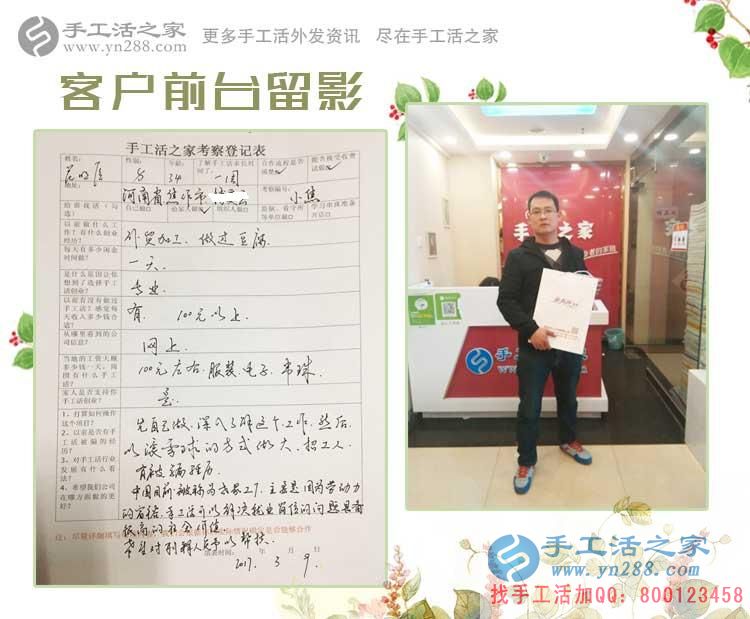 手工活之家
www.yn288.com
更多手工活外发资讯 尽在手工活之家
客户前台留影
手工活之家考察登记表
姓名:
性别:
年龄: 34
了解手工活来长时间了: 一周
合作流程是否清楚
能否接受收费试做
地址: 河南省焦作市
考察编号: 小焦
给谁说活(勾选)
自己做
给家人做
组织人做
监狱、看守所等单位做
学习串珠准备开店
以前做什么工作?有什么创业经历?
外贸加工、做过豆腐
每天有多少闲余时间做?
一天
是什么原因让你想到了选择手工活创业?
专业
以前有没有做过手工活?感觉每天收入多少钱合适?
有, 100元以上
从哪里看到的公司信息?
网上
当地的工资大概多少钱一天,周围有什么手工活?
100元左右 服装、电子、串珠
家人是否支持你手工活创业?
是
1、打算如何操作这个项目?
2、以前是否有手工活被骗的经历?
3、对手工活行业发展有什么看法?
4、希望我们公司在哪方面做的更好?
先自己做,深入了解这个工作,然后
以滚雪球的方式做大,招工人
有被骗经历
中国目前被称为世界工厂,主要是因为劳动力
希望对刑释人员予以帮扶
填表时间: 年 月 日
2017. 3 9.
手工活之家
手工活之家
www.
手工活之家
www.yn288.com
找手工活加QQ:800123458